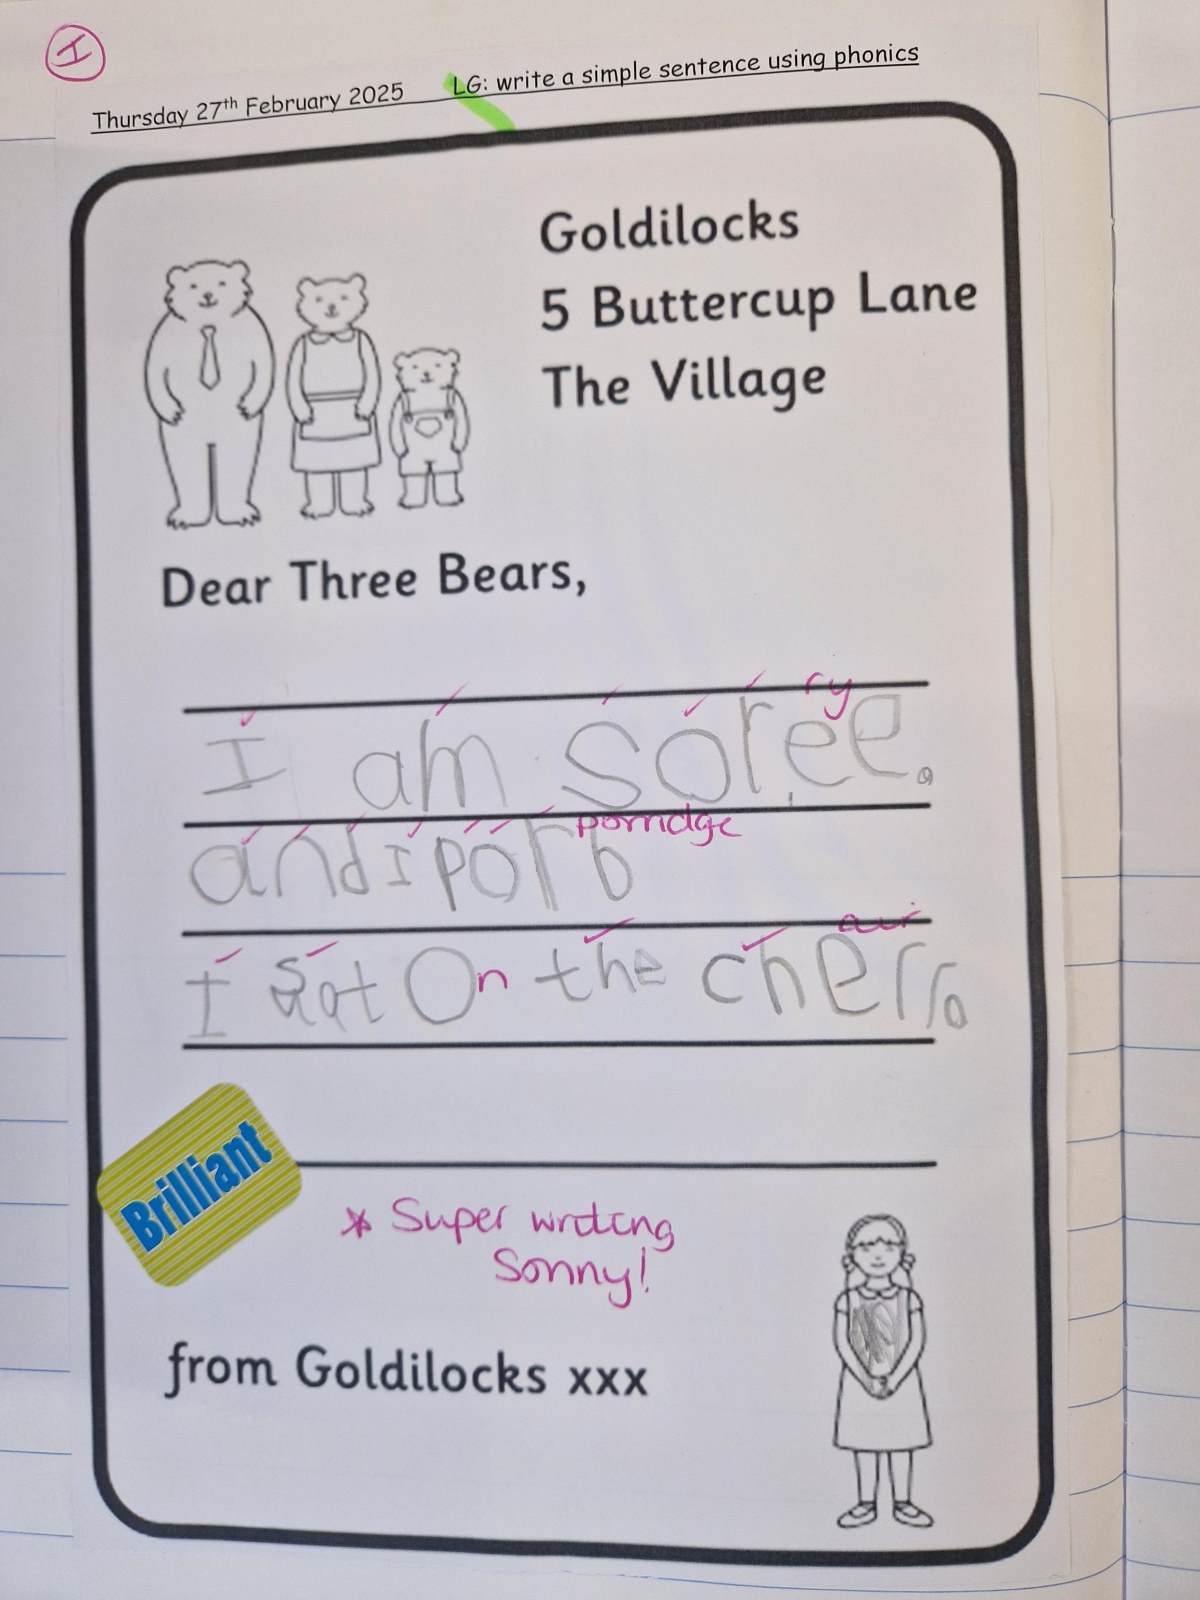 I
Thursday 27th February 2025 LG: write a simple sentence using phonics
Goldilocks
5 Buttercup Lane
The Village
Dear Three Bears,
ry
I am soree.
porridge
and I porb
air
I sat On the cherr.
Brilliant
* Super writing
Sonny!
from Goldilocks xxx